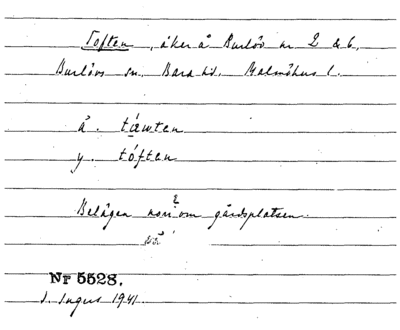 Toften, åker å Burlöv nr 2 & 6,
Burlövs sn. Bara hd. Malmöhus l.
ä. täwten
y. tóften
Belägen norr om gårdsplatsen.
?
Nr 5528.
J. Ingers 1941.